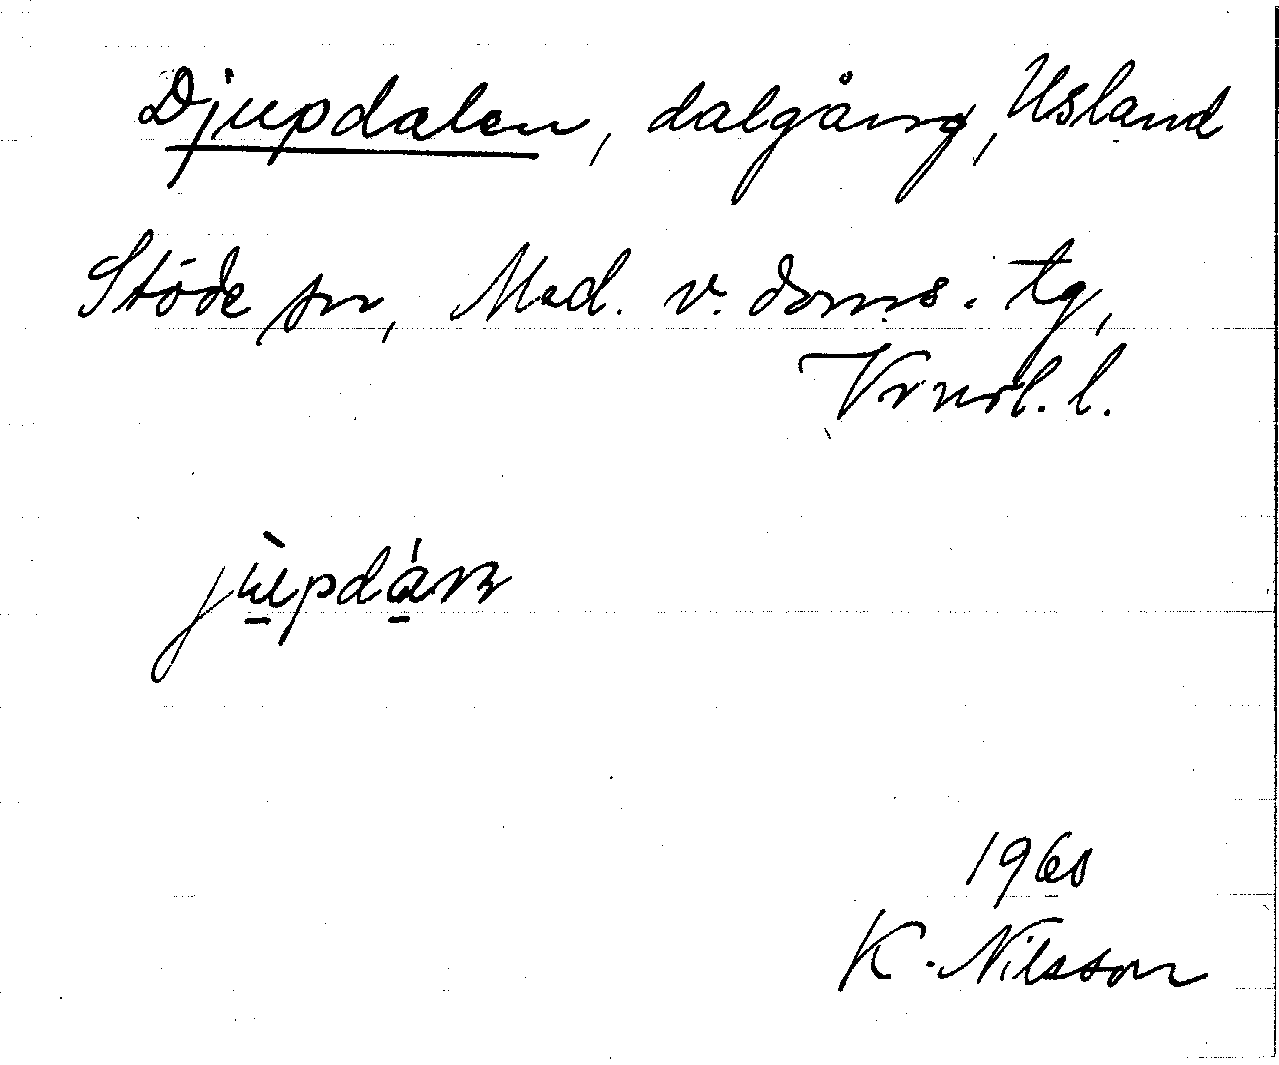 Djupdalen, dalgång, Usland
Stöde sn, Med. v. doms. tg,
Vrnrl. l.
1960
K. Nilsson